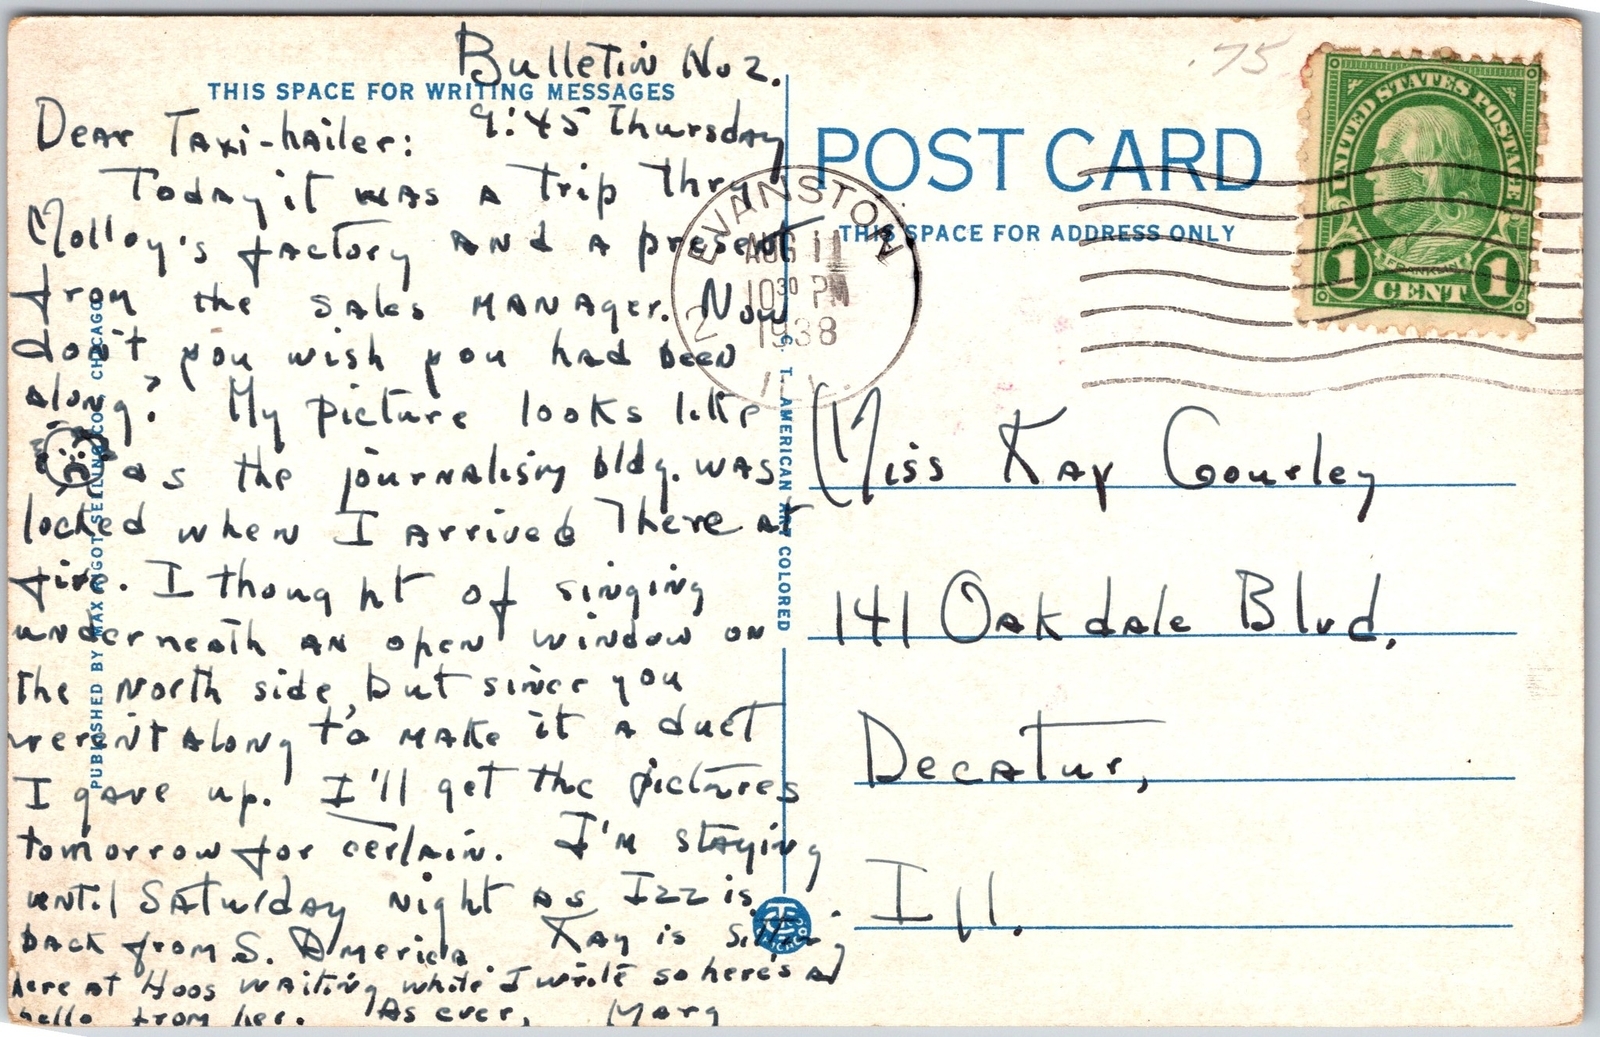 Bulletin No 2.
THIS SPACE FOR WRITING MESSAGES
9:45 Thursday
Dear Taxi-hailer:
Today it was a trip thru
Molloy's factory and a present
from the sales manager. Now
don't you wish you had been
along? My picture looks like
as the journalism bldg. was
locked when I arrived there at
five. I thought of singing
underneath an open window on
the north side, but since you
weren't along to make it a duet
I gave up. I'll get the pictures
tomorrow for certain. I'm staying
until Saturday night as Izz is
back from S. America Kay is sitting
here at Hoos waiting while I write so here's a
hello from her. As ever, Marg
PUBLISHED BY MAX RIGOT SELLING CO., CHICAGO
C. T. AMERICAN ART COLORED
.75
POST CARD
THIS SPACE FOR ADDRESS ONLY
EVANSTON
AUG 11
10 30 PM
1938
2
ILL.
UNITED STATES POSTAGE
FRANKLIN
1 CENT 1
Miss Kay Gourley
141 Oakdale Blvd,
Decatur,
Ill.